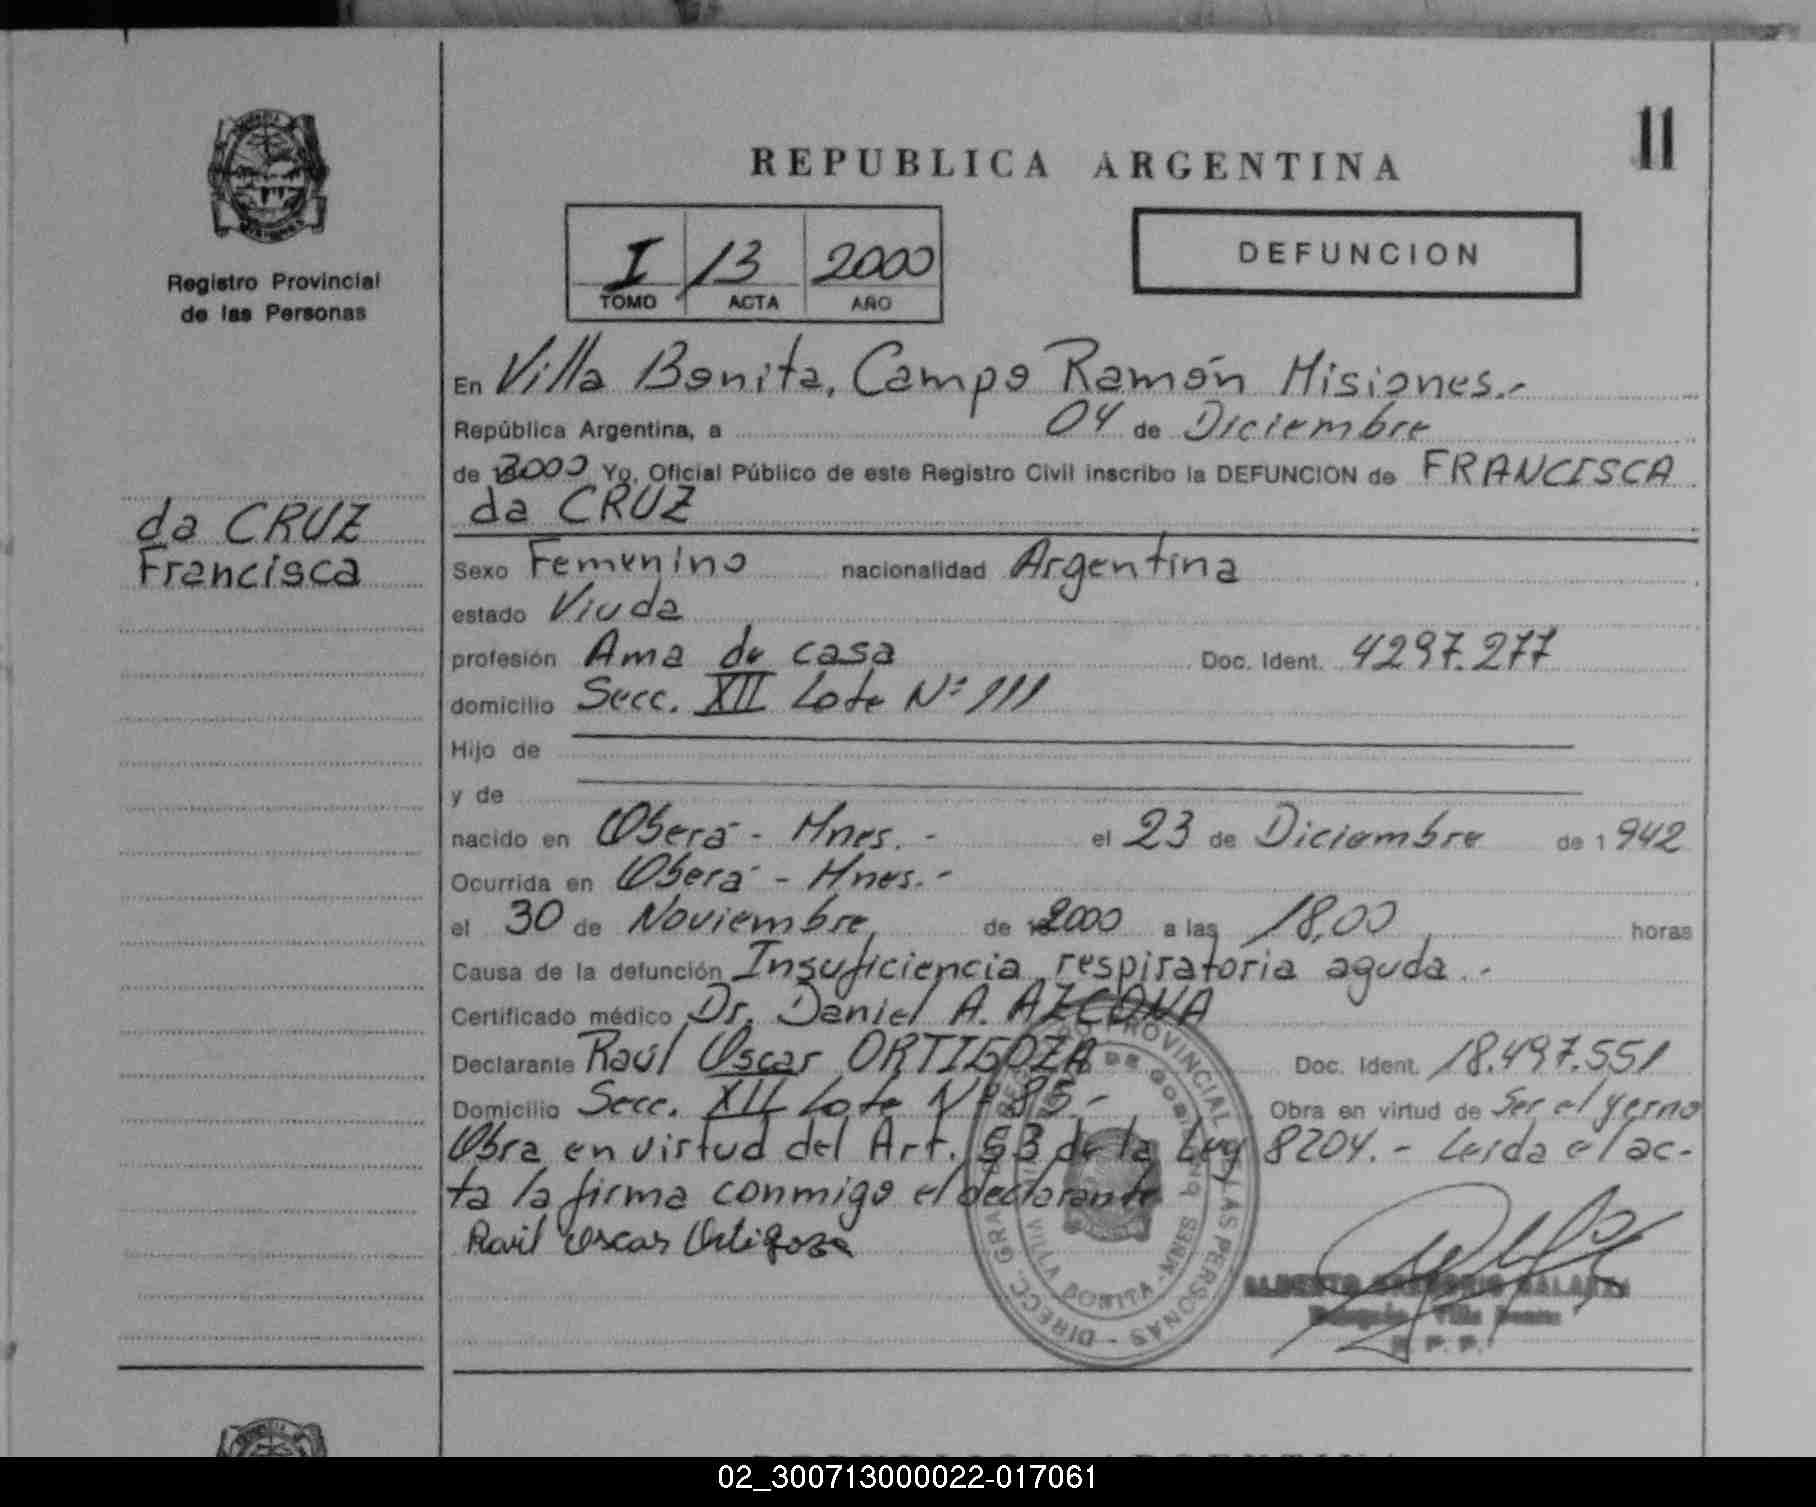 11
REPUBLICA ARGENTINA
Registro Provincial
de las Personas
I 13 2000
TOMO ACTA AÑO
DEFUNCION
En Villa Bonita, Campo Ramón Misiones.-
República Argentina, a 04 de Diciembre
de 2000 Yo, Oficial Público de este Registro Civil inscribo la DEFUNCION de FRANCISCA
da CRUZ
da CRUZ
Francisca
Sexo Femenino nacionalidad Argentina
estado Viuda
profesión Ama de casa Doc. Ident. 4297.277
domicilio Secc. XII Lote Nº 111
Hijo de
y de
nacido en Oberá - Mnes. - el 23 de Diciembre de 1942
Ocurrida en Oberá - Mnes. -
el 30 de Noviembre de 2000 a las 18,00 horas
Causa de la defunción Insuficiencia respiratoria aguda.-
Certificado médico Dr. Daniel A. AZCONA
Declarante Raúl Oscar ORTIGOZA Doc. Ident. 18.497.551
Domicilio Secc. XII Lote Nº 85.- Obra en virtud de Ser el yerno
Obra en virtud del Art. 53 de la Ley 8204.- Leida el ac-
ta la firma conmigo el declarante
Raúl Oscar Ortigoza
DIRECC. GRAL. PROVINCIAL DE LAS PERSONAS
VILLA BONITA - MNES
ALBERTO
Villa Bonita
R. P. P.
02_300713000022-017061